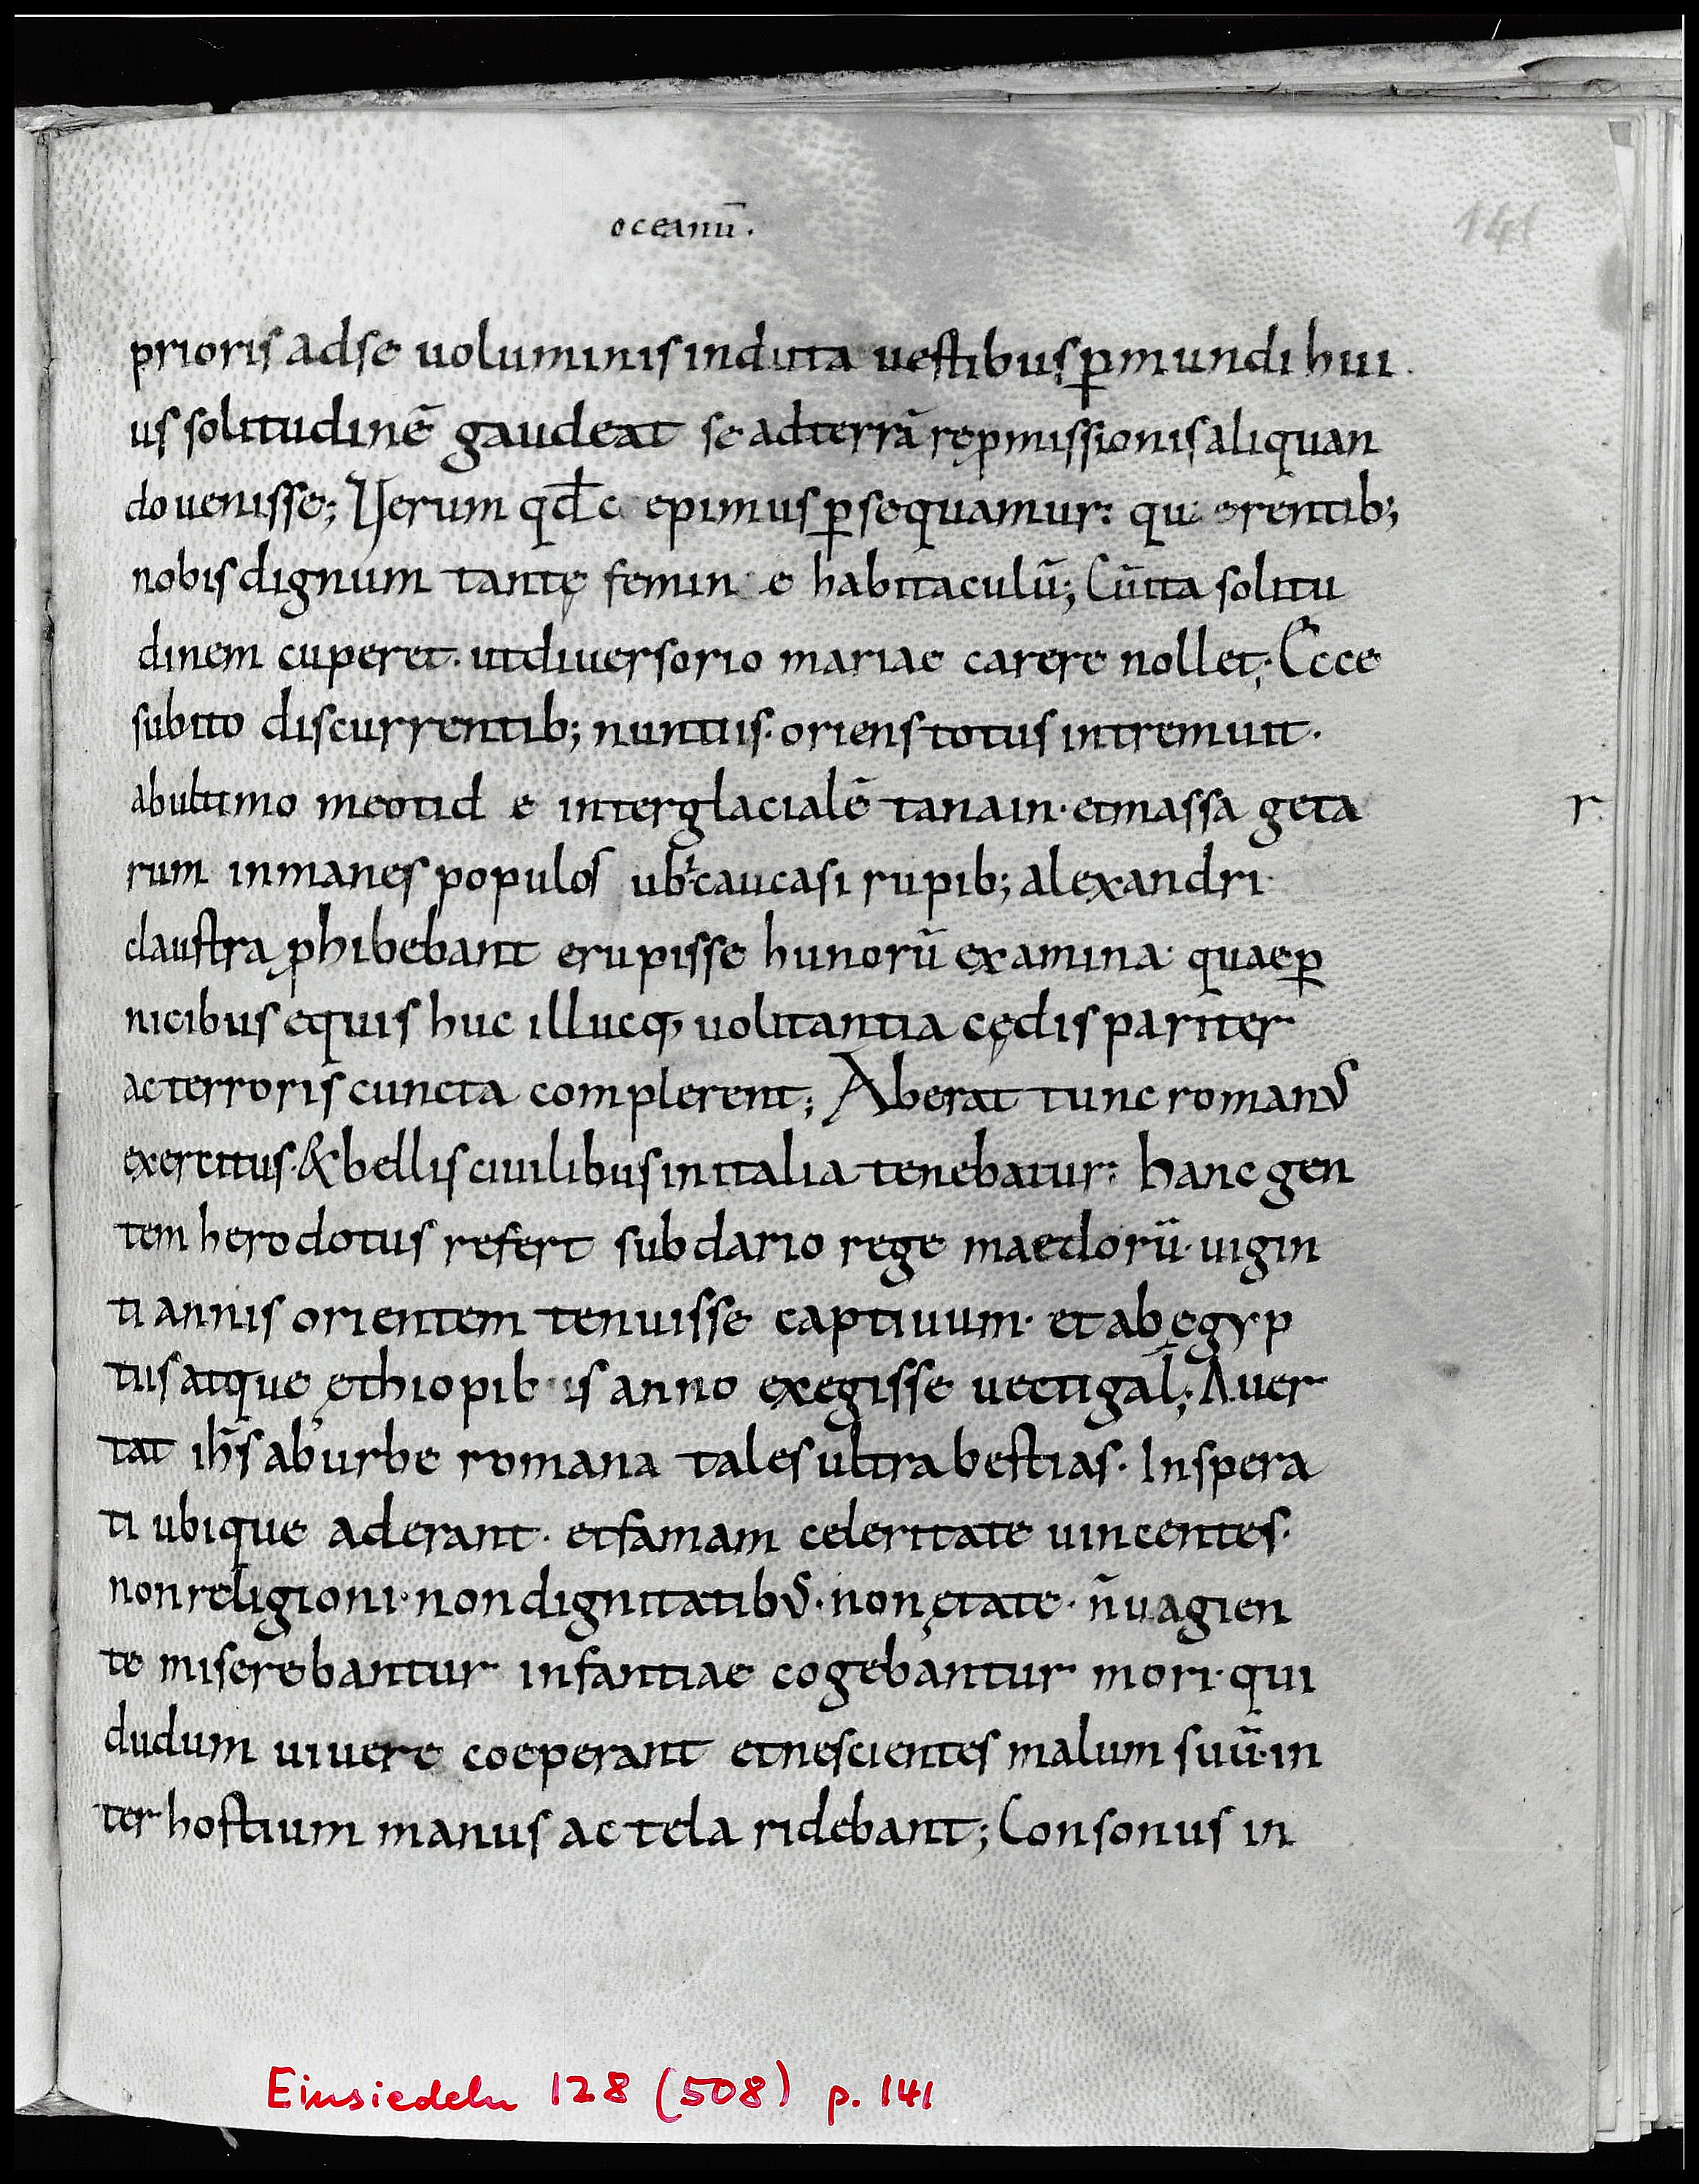 oceanū.
141
prioris adse uoluminis induta uestibus ꝑmundi hui.
us solitudinē gaudeat se adterrā repmissionis aliquan
do uenisse; Uerum qđ c epimus ꝑsequamur: qu erentib;
nobis dignum tantę femin e habitaculū; Cū ita solitu
dinem cuperet. ut diuersorio mariae carere nollet; Ecce
subito discurrentib; nuntiis. oriens totus intremuit.
abultimo meotid e interglacialē tanain. etmassa geta
r.
rum inmanes populos ub caucasi rupib; alexandri
claustra ꝓhibebant erupisse hunorū examina. quaeꝑ
nicibus equis huc illucq; uolitantia cędis pariter
ac terroris cuncta complerent; Aberat tunc romanus
exercitus. & bellis ciuilibus in italia tenebatur: hanc gen
tem herodotus refert sub dario rege maedorū. uigin
ti annis orientem tenuisse captiuum. et ab ęgyp
tiis atque ęthiopib is anno exegisse uectigal; Auer
tat ih̄s ab urbe romana tales ultra bestias. Inspera
ti ubique aderant. et famam celeritate uincentes.
non religioni. non dignitatibus. non ętate. n̄ uagien
te miserebantur infantiae cogebantur mori. qui
dudum uiuere coeperant et nescientes malum suū. in
ter hostium manus ac tela ridebant; Consonus in
Einsiedeln 128 (508) p. 141